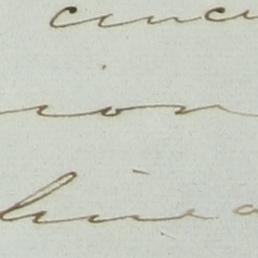 cincu
ion
linea